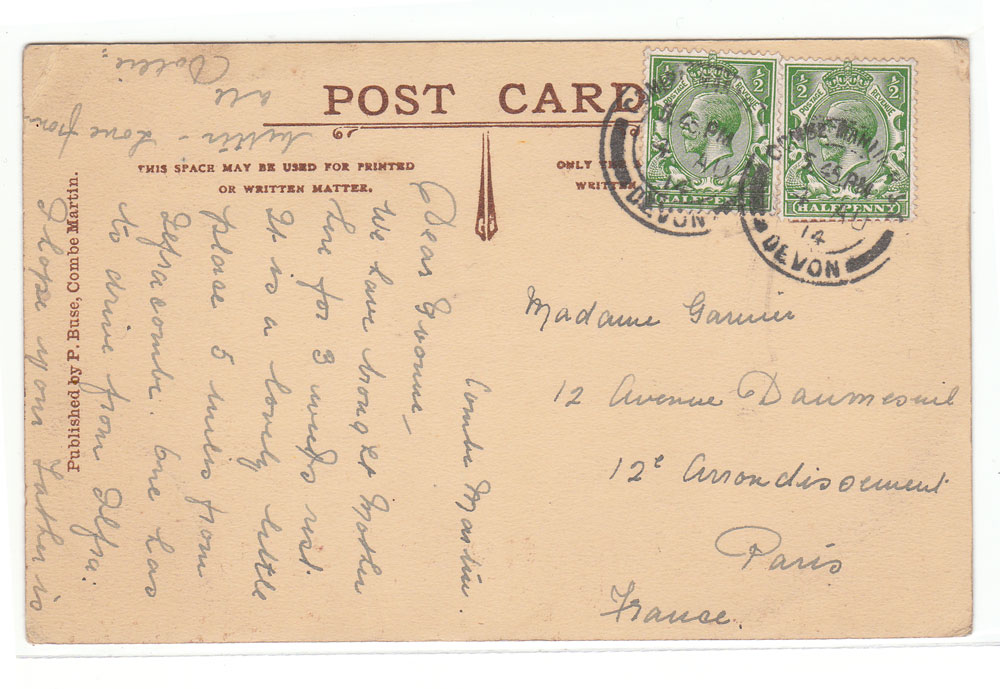 POST CARD
THIS SPACH MAY BE USED FOR PRINTED
OR WRITTEN MATTER.
ONLY THE
WRITTEN
½ ½
POSTAGE REVENUE
HALFPENNY
½ ½
POSTAGE REVENUE
HALFPENNY
COMBE MARTIN
5.45 PM
4 AU
14
DEVON
COMBE MARTIN
5.45 PM
4 AU
14
DEVON
Madame Garnier
12 Avenue Daumesnil
12e Arrondissement
Paris
France.
Combe Martin
Dear Yvonne –
We have brought Mother
here for 3 weeks rest.
It is a lovely little
place 5 miles from
Ilfracombe. One has
to drive from Ilfra:
I hope your Father is
better – Love from
all
Dollie.
Published by P. Buse, Combe Martin.